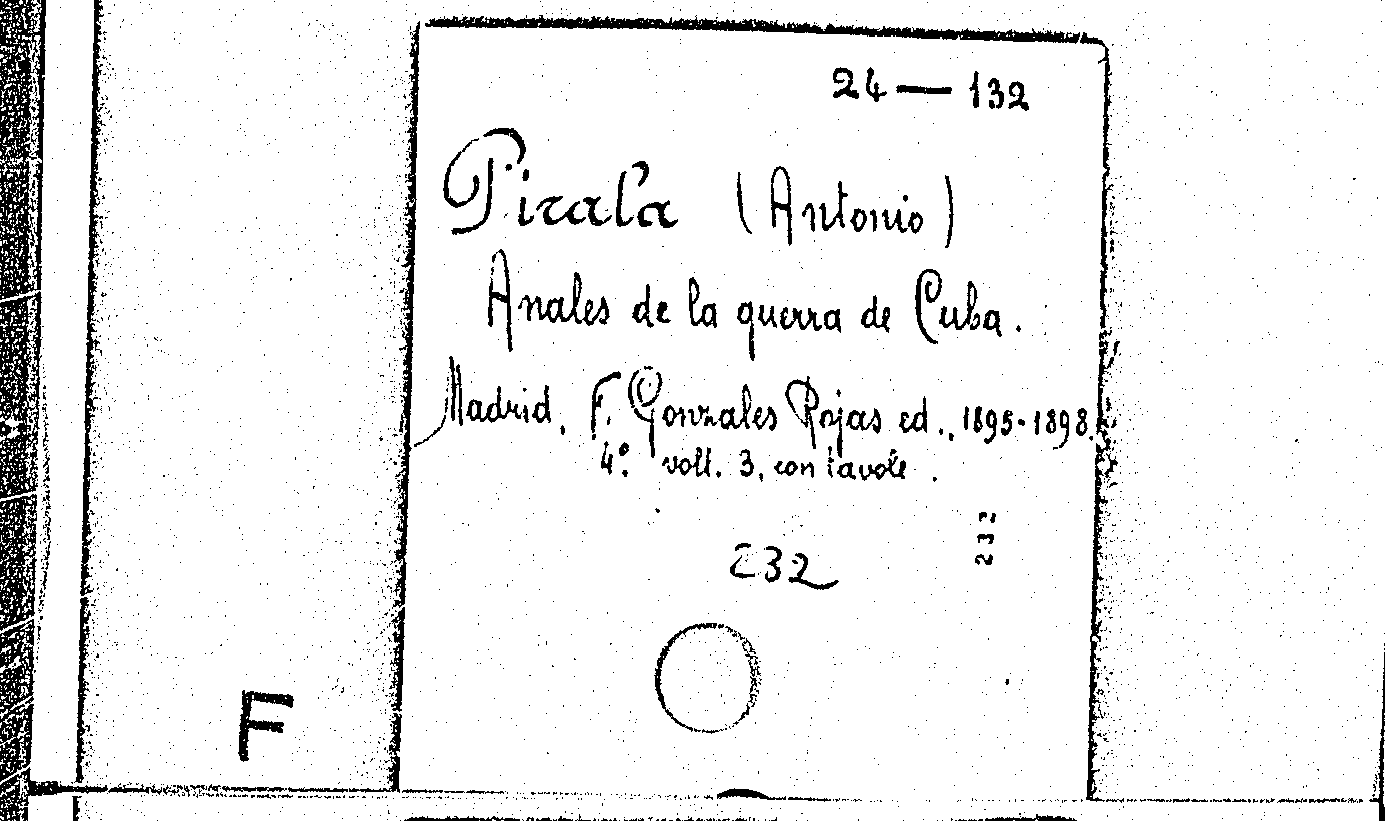 24 — 132
Pirala (Antonio)
Anales de la guerra de Cuba.
Madrid, F. Gonzales Rojas ed., 1895-1898.
4°. voll. 3, con tavole.
232
232
F